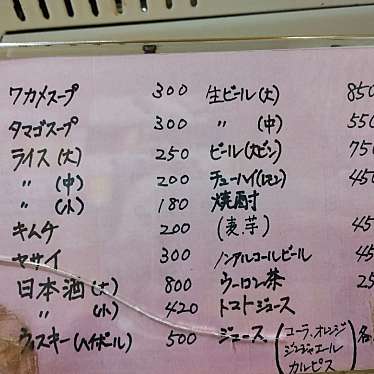 ワカメスープ 300
タマゴスープ 300
ライス(大) 250
〃 (中) 200
〃 (小) 180
キムチ 200
ヤサイ 300
日本酒(大) 800
〃 (小) 420
ウィスキー(ハイボール) 500
生ビール(大) 850
〃 (中) 550
ビール(大ビン) 750
チューハイ(レモン) 450
焼酎
(麦.芋) 45
ノンアルコールビール 45
ウーロン茶 25
トマトジュース
ジュース (コーラ、オレンジ ジンジャエール カルピス) 各